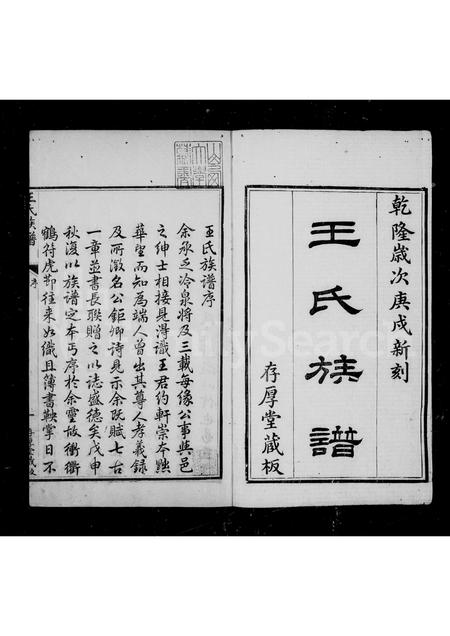 乾隆歲次庚戌新刻
王氏族譜
存厚堂藏板
王氏族譜序
余承乏冷泉將及三載每緣公事與邑
之紳士相接見得識王君約軒崇本黜
華望而知為端人曾出其尊人孝義錄
及所徵名公鉅卿詩見示余既賦七古
一章並書長聯贈之以誌盛德矣戊申
秋復以族譜定本丐序於余靈故衝衢
鶴符虎節往來如織且簿書鞅掌日不
王氏族譜
序
一
存厚堂藏板
FamilySearch